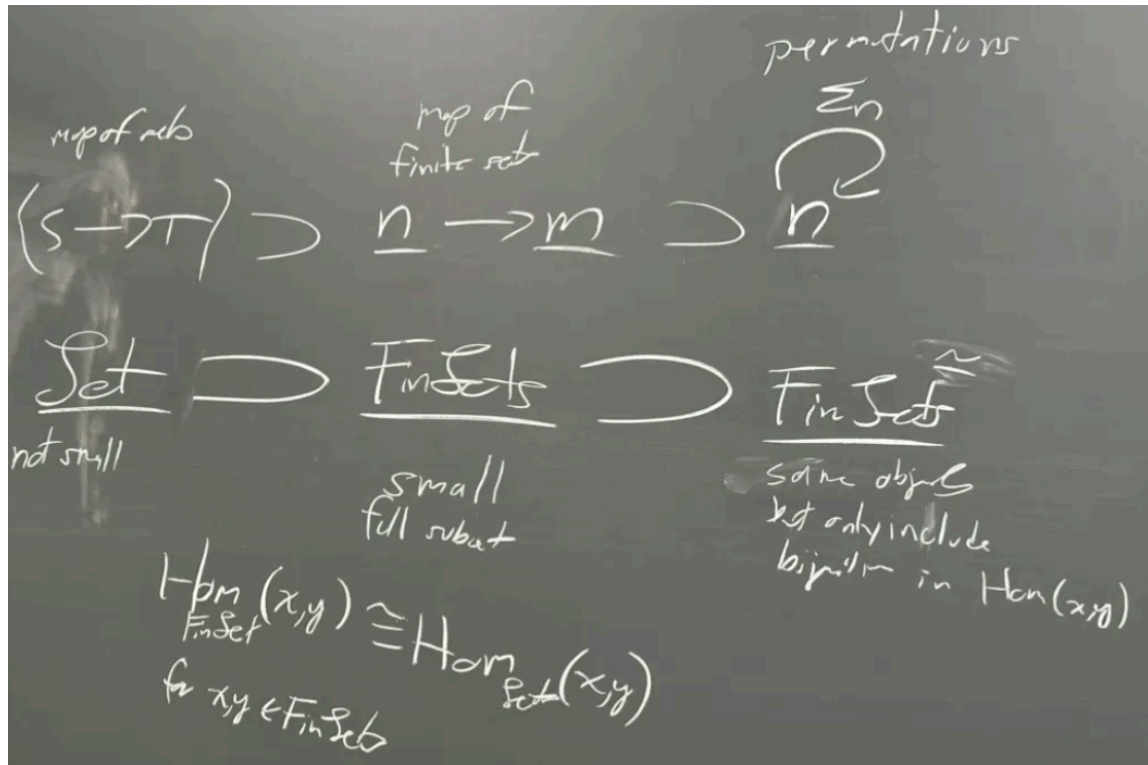 permutations
Σn
map of sets
map of
finite sets
(S → T) ⊃ n → m ⊃ n
Set ⊃ FinSets ⊃ FinSets ≃
not small
small
full subcat
same objects
but only include
bijection in Hom(x,y)
Hom FinSet (x,y) ≅ Hom Set (x,y)
for x,y ∈ FinSets